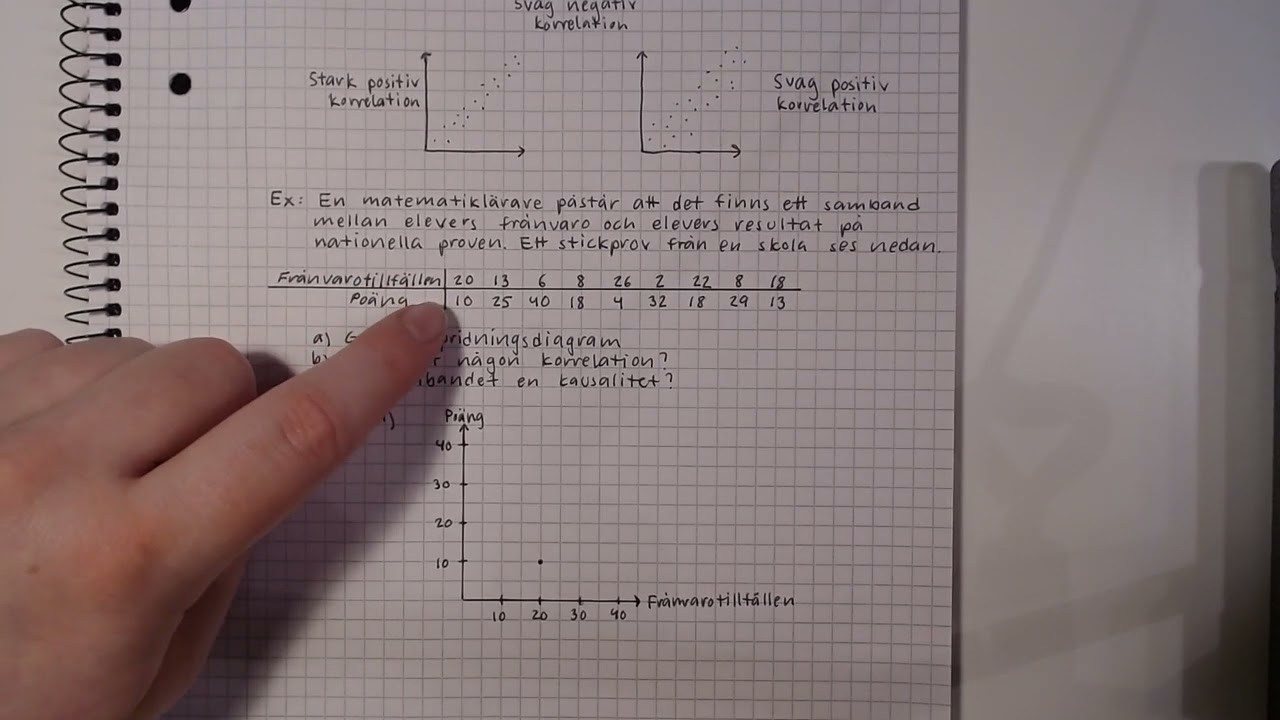 Svag negativ
korrelation
Stark positiv
korrelation
Svag positiv
korrelation
Ex: En matematiklärare påstår att det finns ett samband
mellan elevers frånvaro och elevers resultat på
nationella proven. Ett stickprov från en skola ses nedan.
Frånvarotillfällen 20 13 6 8 26 2 22 8 18
Poäng 10 25 40 18 4 32 18 29 13
a) spridningsdiagram
b) någon korrelation?
en kausalitet?
Poäng
40
30
20
10
10 20 30 40 Frånvarotillfällen